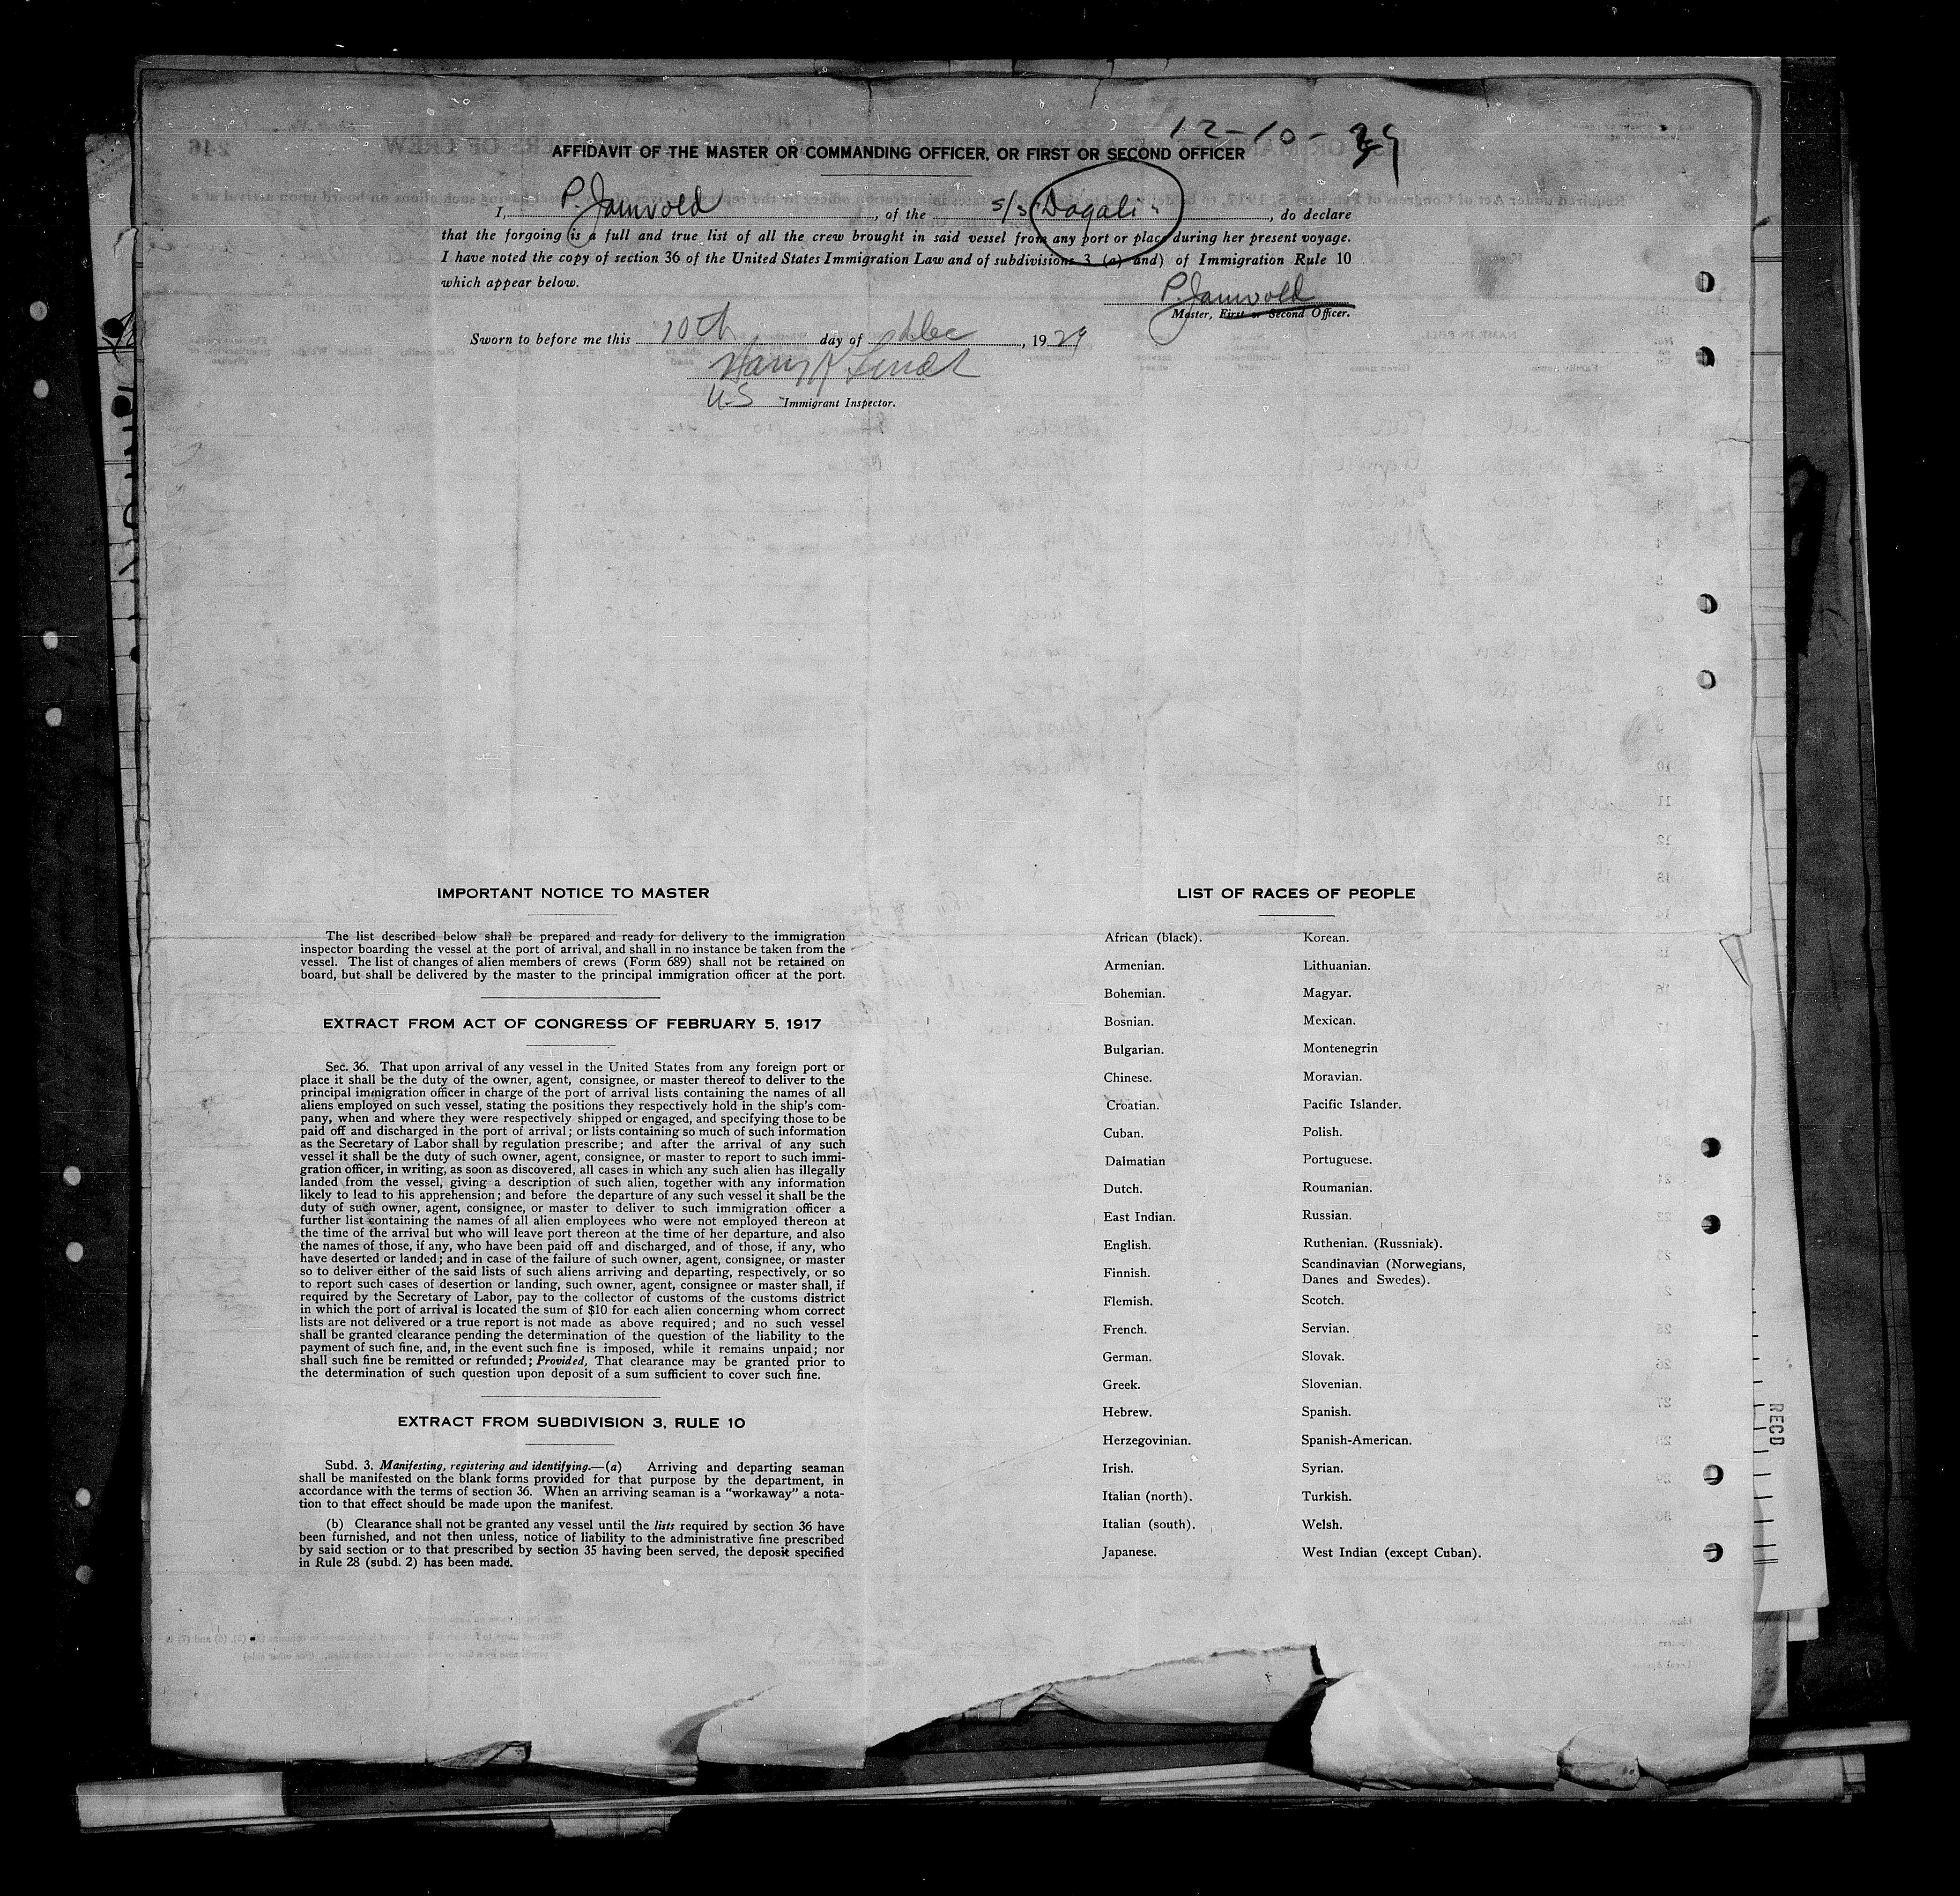 12-10-29
AFFIDAVIT OF THE MASTER OR COMMANDING OFFICER, OR FIRST OR SECOND OFFICER
I, P. Jamvold, of the s/s "Dagali", do declare
that the forgoing is a full and true list of all the crew brought in said vessel from any port or place during her present voyage.
I have noted the copy of section 36 of the United States Immigration Law and of subdivisions 3 (a) and) of Immigration Rule 10
which appear below.
P. Jamvold
Master, First or Second Officer.
Sworn to before me this 10th day of Dec, 1929
Harry K
U.S Immigrant Inspector.
IMPORTANT NOTICE TO MASTER
The list described below shall be prepared and ready for delivery to the immigration
inspector boarding the vessel at the port of arrival, and shall in no instance be taken from the
vessel. The list of changes of alien members of crews (Form 689) shall not be retained on
board, but shall be delivered by the master to the principal immigration officer at the port.
EXTRACT FROM ACT OF CONGRESS OF FEBRUARY 5, 1917
Sec. 36. That upon arrival of any vessel in the United States from any foreign port or
place it shall be the duty of the owner, agent, consignee, or master thereof to deliver to the
principal immigration officer in charge of the port of arrival lists containing the names of all
aliens employed on such vessel, stating the positions they respectively hold in the ship's com-
pany, when and where they were respectively shipped or engaged, and specifying those to be
paid off and discharged in the port of arrival; or lists containing so much of such information
as the Secretary of Labor shall by regulation prescribe; and after the arrival of any such
vessel it shall be the duty of such owner, agent, consignee, or master to report to such immi-
gration officer, in writing, as soon as discovered, all cases in which any such alien has illegally
landed from the vessel, giving a description of such alien, together with any information
likely to lead to his apprehension; and before the departure of any such vessel it shall be the
duty of such owner, agent, consignee, or master to deliver to such immigration officer a
further list containing the names of all alien employees who were not employed thereon at
the time of the arrival but who will leave port thereon at the time of her departure, and also
the names of those, if any, who have been paid off and discharged, and of those, if any, who
have deserted or landed; and in case of the failure of such owner, agent, consignee, or master
so to deliver either of the said lists of such aliens arriving and departing, respectively, or so
to report such cases of desertion or landing, such owner, agent, consignee or master shall, if
required by the Secretary of Labor, pay to the collector of customs of the customs district
in which the port of arrival is located the sum of $10 for each alien concerning whom correct
lists are not delivered or a true report is not made as above required; and no such vessel
shall be granted clearance pending the determination of the question of the liability to the
payment of such fine, and, in the event such fine is imposed, while it remains unpaid; nor
shall such fine be remitted or refunded; Provided, That clearance may be granted prior to
the determination of such question upon deposit of a sum sufficient to cover such fine.
EXTRACT FROM SUBDIVISION 3, RULE 10
Subd. 3. Manifesting, registering and identifying.—(a) Arriving and departing seaman
shall be manifested on the blank forms provided for that purpose by the department, in
accordance with the terms of section 36. When an arriving seaman is a "workaway" a nota-
tion to that effect should be made upon the manifest.
(b) Clearance shall not be granted any vessel until the lists required by section 36 have
been furnished, and not then unless, notice of liability to the administrative fine prescribed
by said section or to that prescribed by section 35 having been served, the deposit specified
in Rule 28 (subd. 2) has been made.
LIST OF RACES OF PEOPLE
African (black).
Armenian.
Bohemian.
Bosnian.
Bulgarian.
Chinese.
Croatian.
Cuban.
Dalmatian
Dutch.
East Indian.
English.
Finnish.
Flemish.
French.
German.
Greek.
Hebrew.
Herzegovinian.
Irish.
Italian (north).
Italian (south).
Japanese.
Korean.
Lithuanian.
Magyar.
Mexican.
Montenegrin
Moravian.
Pacific Islander.
Polish.
Portuguese.
Roumanian.
Russian.
Ruthenian. (Russniak).
Scandinavian (Norwegians,
Danes and Swedes).
Scotch.
Servian.
Slovak.
Slovenian.
Spanish.
Spanish-American.
Syrian.
Turkish.
Welsh.
West Indian (except Cuban).
RECD